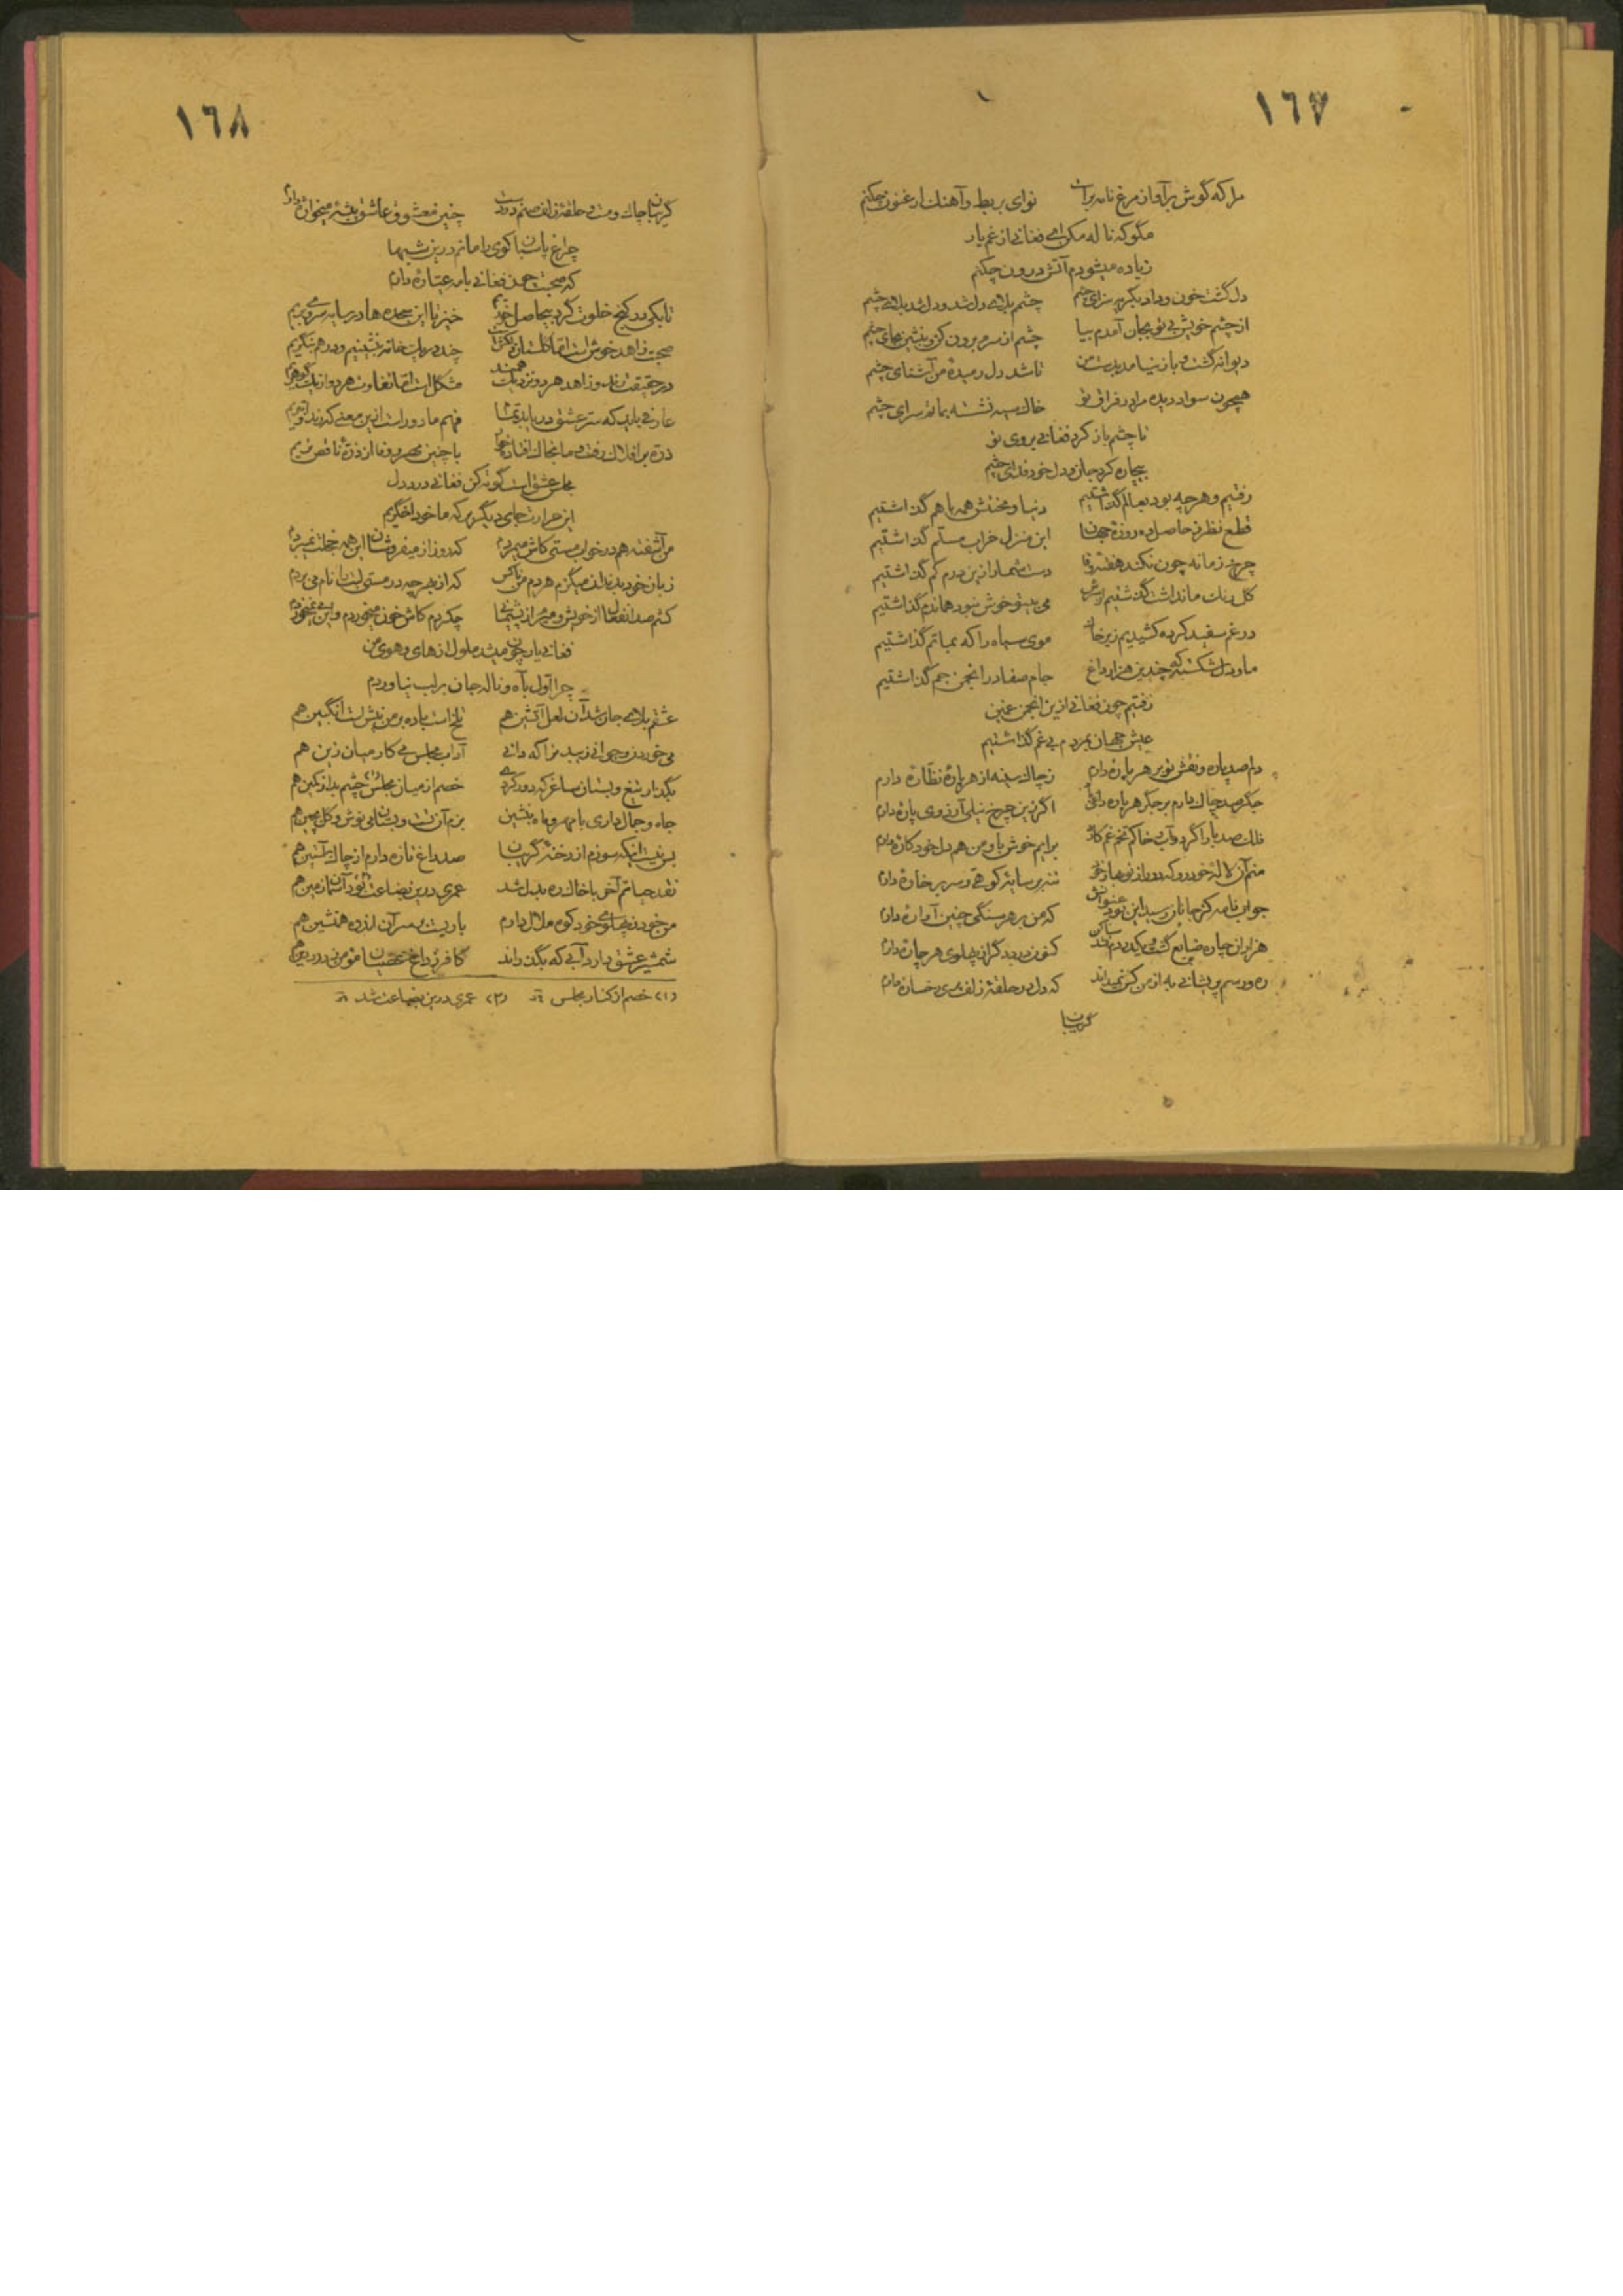 ١٦٧
مرا که گوش برآواز مرغ نامه برست نوای بربط و آهنك ارغنون چکنم
مگو که ناله مکن ای فغانی از غم یار
زیاده میشودم آتش درون چکنم
دل گشت خون و داد بگریه سزای چشم چشم بلای دل شد و دل شد بلای چشم
از چشم خویش بی تو بجان آمدم بیا چشم از سرم برون کن و بنشین بجای چشم
دیوانه گشت و باز نیامد بدست من تا شد دل رمیدهٔ من آشنای چشم
همچون سواد دیده مرا در فراق تو خاك سیه نشسته بماتم سرای چشم
تا چشم باز کرد فغانی بروی تو
بیچاره کرد جان و دل خود فدای چشم
رفتیم و هر چه بود بعالم گذاشتیم دنیا و محنتش همه با هم گذاشتیم
قطع نظر ز حاصل ده روزهٔ جهان این منزل خراب مسلم گذاشتیم
چرخ زمانه چون نکند هفته وفا دست شمار ازین درم کم گذاشتیم
گل رنك ما نداشت گذشتیم از سرش می بیتو خوش نبود همان دم گذاشتیم
در غم سفید کرده کشیدیم زیر خاك موی سیاه را که بماتم گذاشتیم
ما و دل شکسته که چندین هزار داغ جام صفا در انجمن جم گذاشتیم
رفتیم چون فغانی ازین انجمن غمین
عیش جهان بمردم بی غم گذاشتیم
دلم صد پاره و نقش تو بر هر پاره دارم ز چاك سینه از هر پاره نظاره دارم
جگر صد چاك دارم بر جگر هر پاره داغی اگر زین چرخ نیلی آرزوی پاره دارم
فلك صد بار اگر دوآب خاکم تخم غم کارد برایم خوش باو من هم دل خود کاره دارم
منم آن لالهٔ خودرو که دور از نوبهار خود نه بر سایهٔ کوهی و سر بر خاره دارم
جواب نامه کز جانان رسید این بود عنوانش که من بر هر سنگی چنین آواره دارم
هزاران چاره ضایع گشت کنون درد گران پهلوی هر چاره دارم
ره و رسم پریشانی به از من کس نمیداند که دل در حلقهٔ زلف پری رخساره دارم
گریبان
١٦٨
گریبان چاك و مست در حلقهٔ زلف صنم دردست چنین معشوق و عاشق پیشهٔ میخواره دارم
چراغ پاسبان کوی را مانم درین شبها
که صحبت چون فغانی با مه عیاره دارم
تا بکی در کنج خلوت گرد بیحاصل خوریم خیز تا این سجده ها در سایه سروی بریم
صحبت زاهد خوش است اما گلستان نکترست چند در یك خانه بنشینیم و در هم بنگریم
در حقیقت رند و زاهد هر دو نزدیك همند مشکل است اما تفاوت هر دو از یك گوهریم
عارفی باید که ستر عشق در یابد تمام فهم ما دور است ازین معنی که رند ابتریم
ذره بر افلاك رفت و ما بخاك افتاده ایم با چنین مهر و وفا از ذره ناقص تریم
مجلس عشق است گوته کن فغانی درد دل
این حرارت جای دیگر بر که ما خود اخگریم
من آشفته هم در خواب مستی کاش میمردم که روز از میفروشان این همه خجلت نمیبردم
زبان خود بدندان میگزم هر دم من ناکس که از بهر چه در مستی لبت را نام می بردم
کشم صد انفعال از خویش و میرم از پشیمانی چکردم کاش خون میخوردم و این می نمیخوردم
فغانی یار چون میشد ملول از های و هوی من
چرا اول بآه و ناله جان بر لب نیاوردم
عشقم بلای جان شد آن لعل آتشین هم تلخ است باده بر من بیش لبت انگبین هم
می خوردن و جوانی زیبد مرا که دانی آداب مجلس می کار میان زین هم
بگذار تیغ و بستان ساغر که دور گردید خصم از میان مجلس(١) چشم بد از کمین هم
جاه و جمال داری با مهر و ماه بنشین بزم آن تست و بستان می نوش و گل بچین هم
بس نیست اینکه سوزم از رخنهٔ گریبان صد داغ تازه دارم از چاك آستین هم
نقد حیاتم آخر با خاك ره بدل شد عمری درین بضاعت(٢) بود آسمان زمین هم
من خود ز پهلوی خود کوه ملال دارم باریست بر سر آن اندوه همنشین هم
شمشیر عشق دارد آبی که بگذراند کافر ز داغ عصیان مؤمن ز درد دین هم
(١) خصم از کنار مجلس (٢) عمری درین بضاعت شد